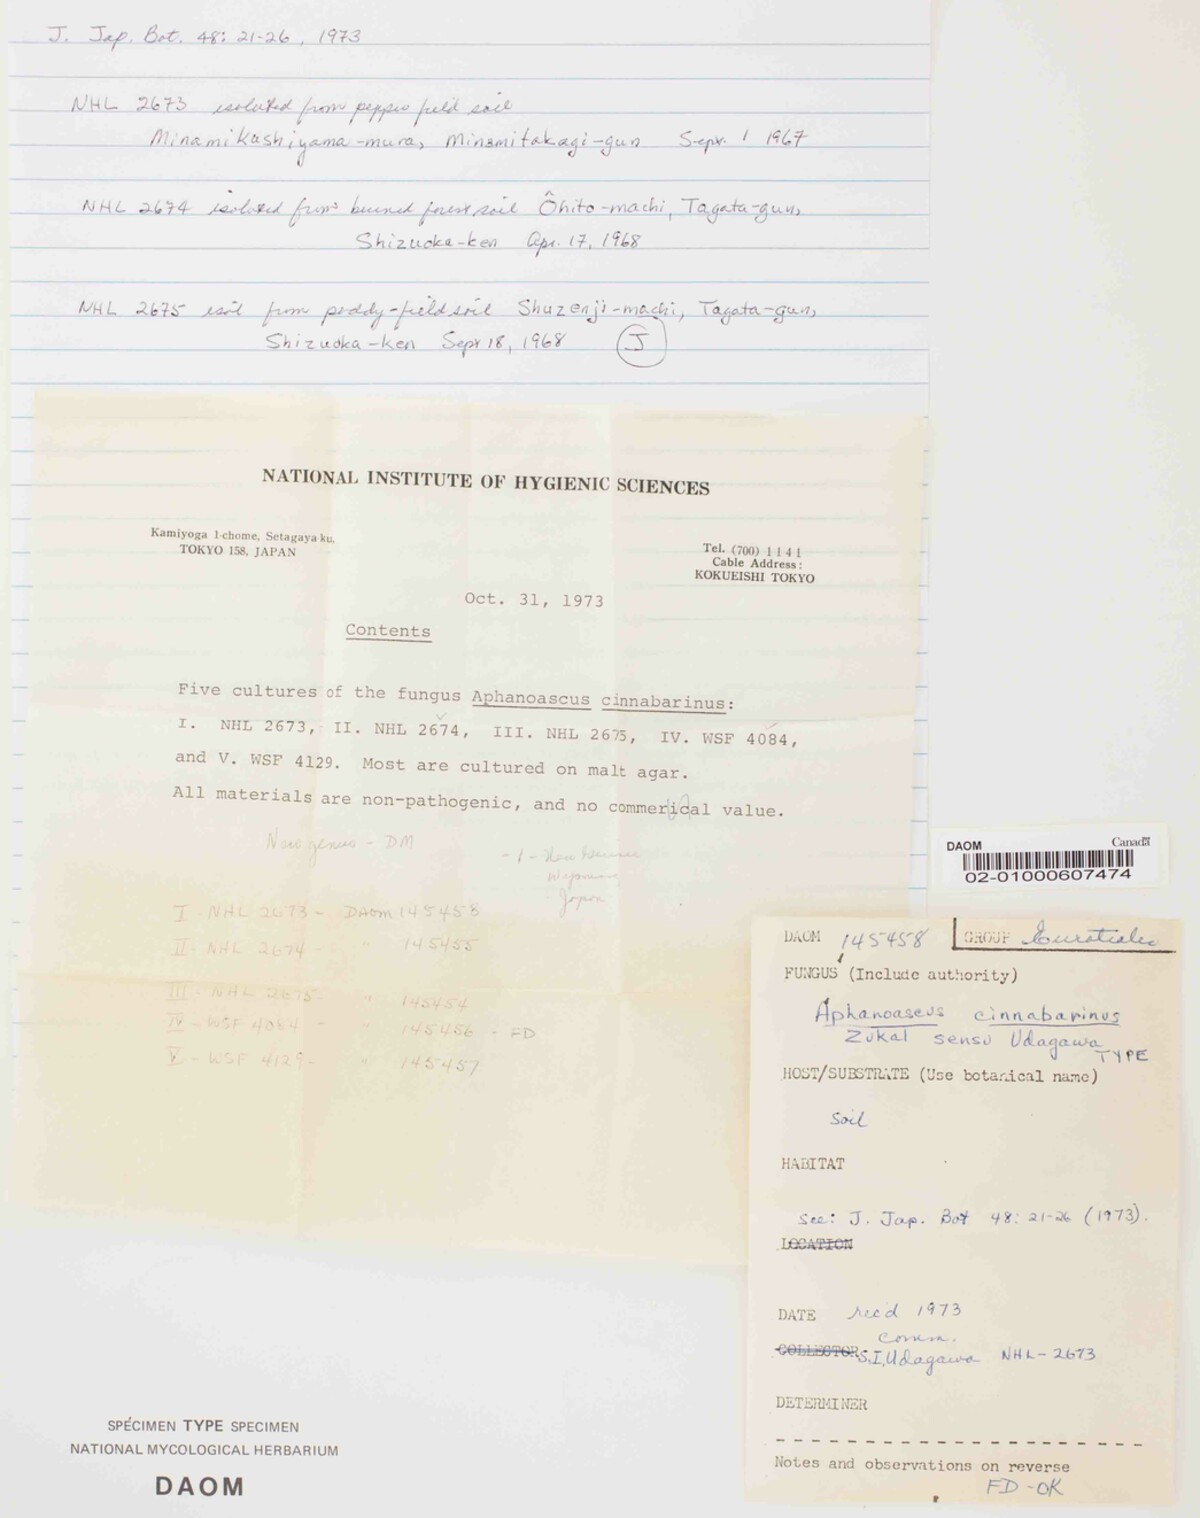 J. Jap. Bot. 48: 21-26, 1973
NHL 2673 isolated from pepper field soil
Minamikushiyama-mura, Minamitakagi-gun Sept. 1 1967
NHL 2674 isolated from burned forest soil Ôhito-machi, Tagata-gun,
Shizuoka-ken Apr. 17, 1968
NHL 2675 isol from paddy-field soil Shuzenji-machi, Tagata-gun,
Shizuoka-ken Sept 18, 1968 J
NATIONAL INSTITUTE OF HYGIENIC SCIENCES
Kamiyoga 1-chome, Setagaya ku,
TOKYO 158, JAPAN
Tel. (700) 1141
Cable Address:
KOKUEISHI TOKYO
Oct. 31, 1973
Contents
Five cultures of the fungus Aphanoascus cinnabarinus:
I. NHL 2673, II. NHL 2674, III. NHL 2675, IV. WSF 4084,
and V. WSF 4129. Most are cultured on malt agar.
All materials are non-pathogenic, and no commerical value.
New genus - DM
- 1 - New
Wyoming
Japan
I NHL 2673 - DAOM 145458
II - NHL 2674 - " 145455
III - NHL 2675 " 145454
IV - WSF 4084 - " 145456 - FD
V - WSF 4129 - " 145457
DAOM Canada
02-01000607474
DAOM 145458 GROUP Eurotiales
FUNGUS (Include authority)
Aphanoascus cinnabarinus
Zukal sensu Udagawa
TYPE
HOST/SUBSTRATE (Use botanical name)
soil
HABITAT
see: J. Jap. Bot 48: 21-26 (1973).
LOCATION
DATE rec'd 1973
comm.
COLLECTOR S.I. Udagawa NHL-2673
DETERMINER
Notes and observations on reverse
FD-OK
SPÉCIMEN TYPE SPECIMEN
NATIONAL MYCOLOGICAL HERBARIUM
DAOM